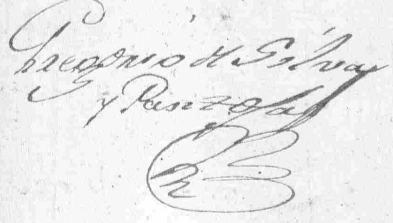 Gregorio de Silva
y Panzofas